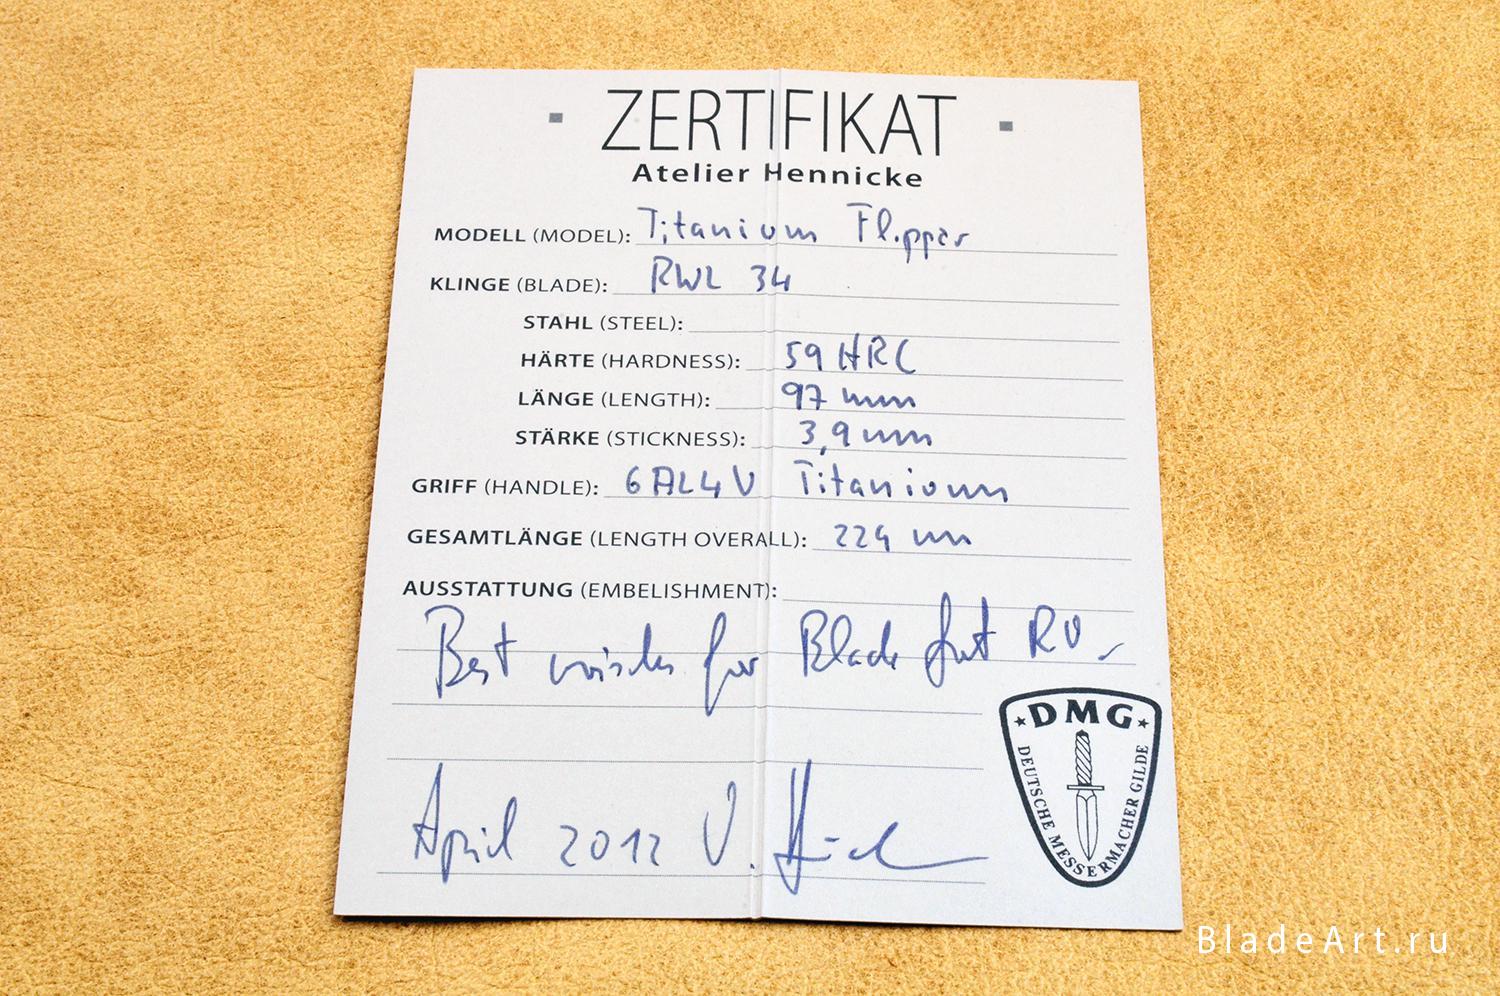 ZERTIFIKAT
Atelier Hennicke
MODELL (MODEL): Titanium Flipper
KLINGE (BLADE): RWL 34
STAHL (STEEL):
HÄRTE (HARDNESS): 59 HRC
LÄNGE (LENGTH): 97 mm
STÄRKE (STICKNESS): 3,9 mm
GRIFF (HANDLE): 6AL4V Titanium
GESAMTLÄNGE (LENGTH OVERALL): 224 mm
AUSSTATTUNG (EMBELISHMENT):
Best wishes for Blade RU
April 2012 U.
DMG
DEUTSCHE MESSERMACHER GILDE
BladeArt.ru